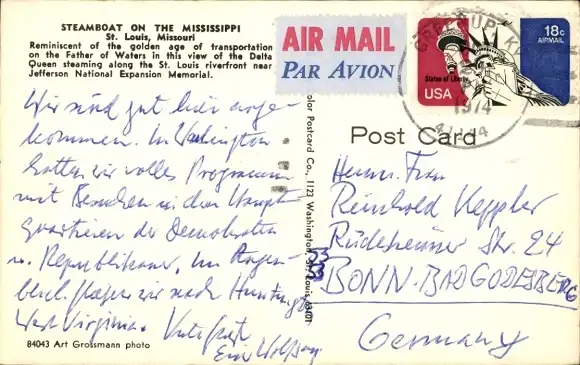 STEAMBOAT ON THE MISSISSIPPI
St. Louis, Missouri
Reminiscent of the golden age of transportation
on the Father of Waters in this view of the Delta
Queen steaming along the St. Louis riverfront near
Jefferson National Expansion Memorial.
AIR MAIL
PAR AVION
Statue of Liberty
USA
18c
AIRMAIL
1974
Post Card
Wir sind gut hier ange-
kommen. In Washington
hatten wir volles Programm
mit Besuchen in den Haupt
quartieren der Demokraten
u. Republikaner. Im Augen-
blick fliegen wir nach Huntington
West Virginia.
Wolfgang
84043 Art Grossmann photo
Color Postcard Co., 1123 Washington, St. Louis 63101
Herrn. Frau
Reinhold Keppler
Rüdesheimer Str. 24
53
BONN-BAD GODESBERG
Germany